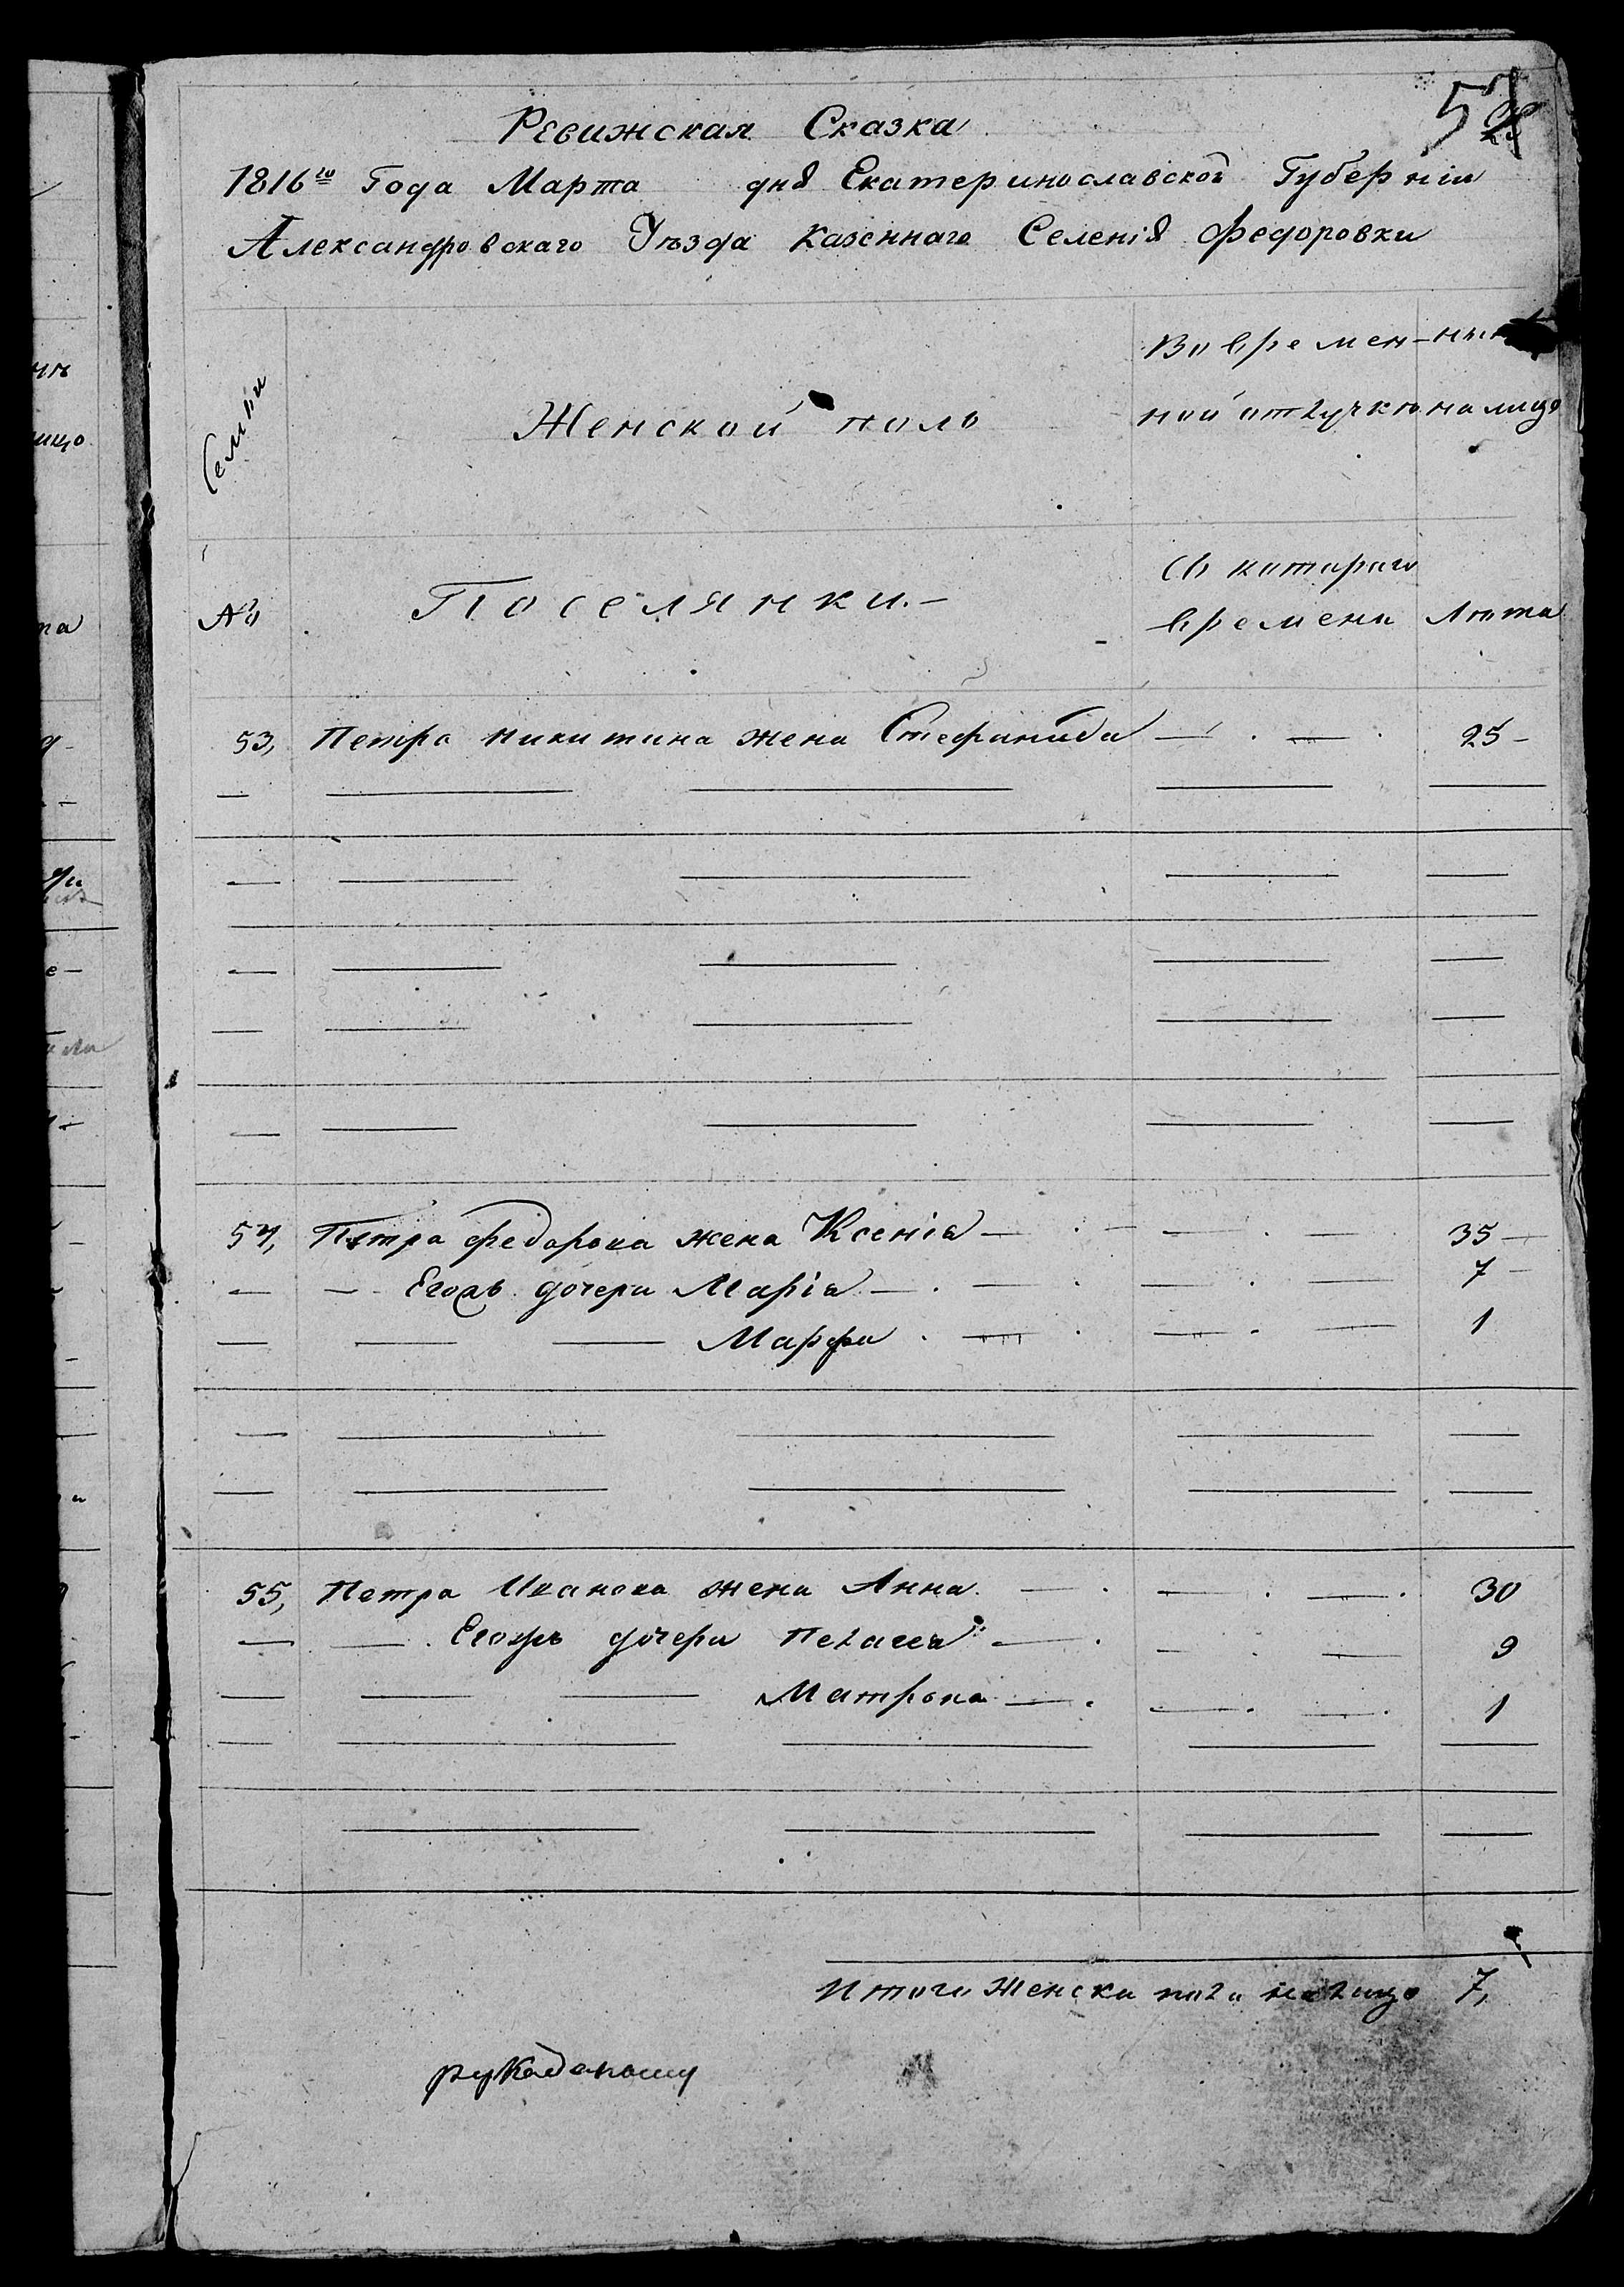 Ревижская Сказка
1816го Года Марта дня Екатеринославской Губерніи
Александровскаго Уѣзда Казеннаго Селенія Федоровки
Семьи
Женской поль
Во времен-
ной отлучкѣ
налицо
№
Поселянки.-
Съ котораго
времени
Лѣта
53, Петра Никитина жена Стефанида — . — . 25-
54, Петра Федорова жена Ксенія — . — — . — 35-
— — Егожъ дочери Марія — . — . — . — 7-
— — — Марфа . — . — . — 1
55, Петра Иванова жена Анна. — . — . — . 30
— — . Егожъ дочери Пелагея — . — . — 9
— — — Матрона — . — . — . 1
Итого Женска пола налицо 7,